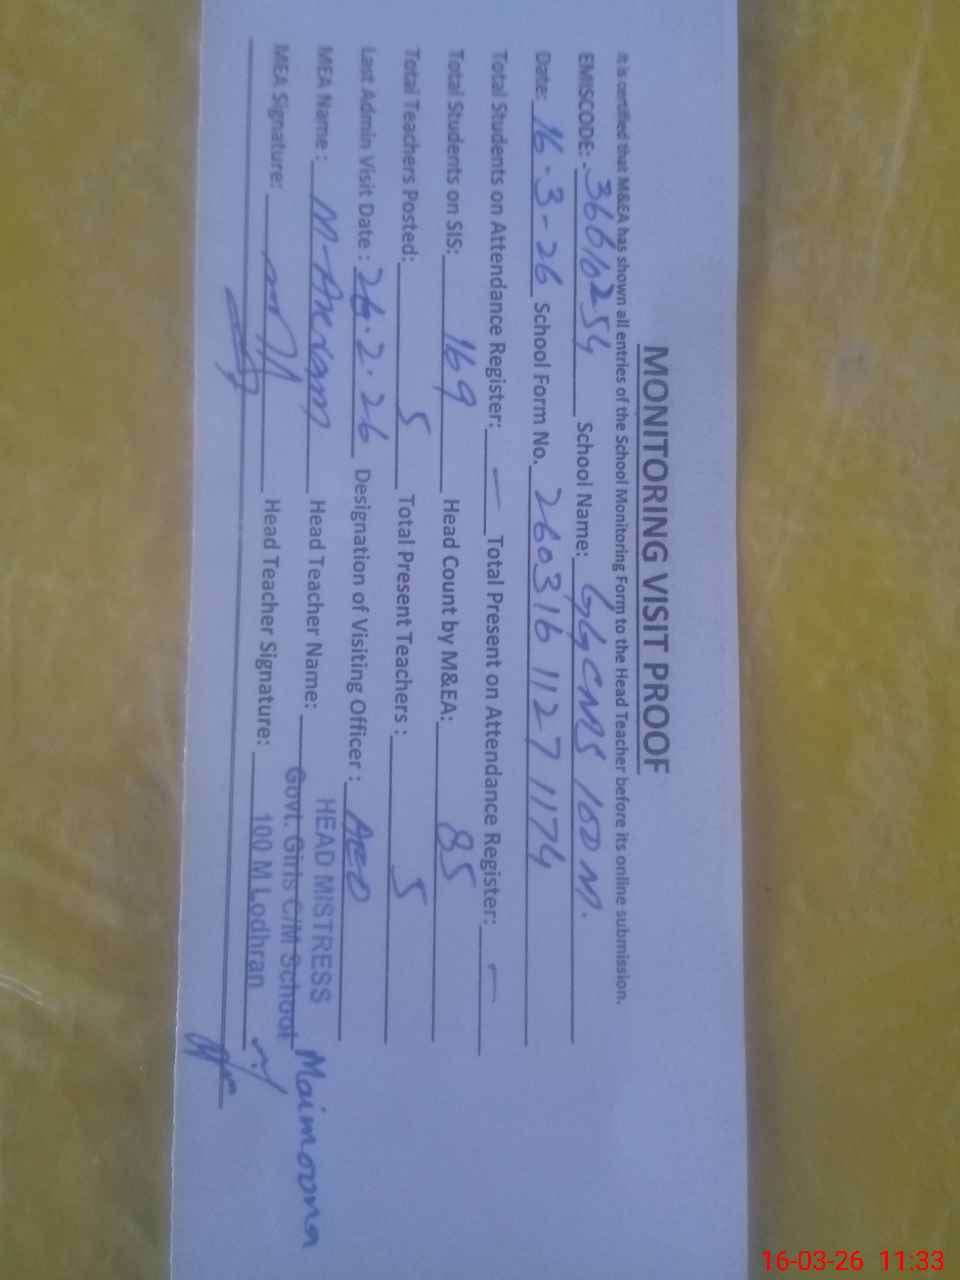 MONITORING VISIT PROOF
It is certified that M&EA has shown all entries of the School Monitoring Form to the Head Teacher before its online submission.
EMISCODE: 36610254 School Name: GGCMS 100 M.
Date: 16-3-26 School Form No. 260316 1127 1174
Total Students on Attendance Register: — Total Present on Attendance Register: —
Total Students on SIS: 169 Head Count by M&EA: 85
Total Teachers Posted: 5 Total Present Teachers: 5
Last Admin Visit Date: 26.2.26 Designation of Visiting Officer: AEO
MEA Name: M- Head Teacher Name: Maimoona
HEAD MISTRESS
Govt. Girls C/M School
100 M Lodhran
MEA Signature: Head Teacher Signature:
16-03-26 11:33